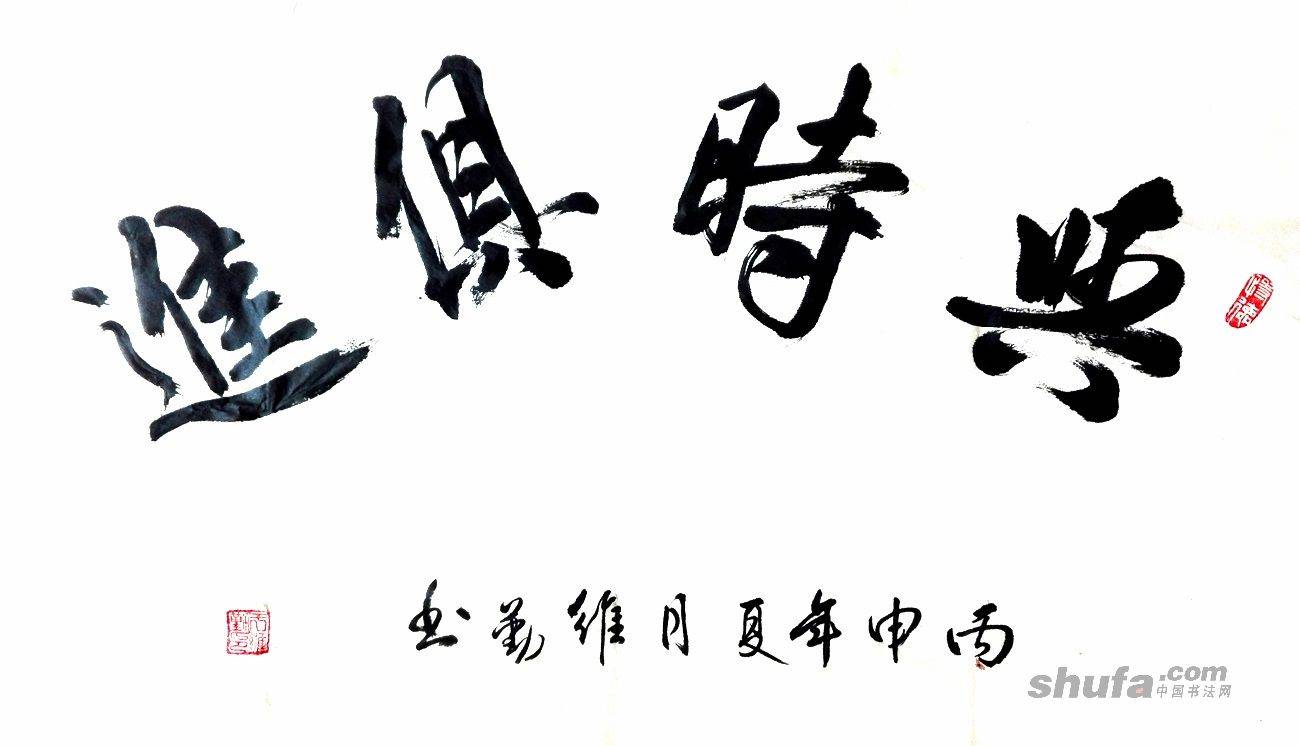 與時俱進
丙申年夏月維勤书
shufa.com
中国书法网